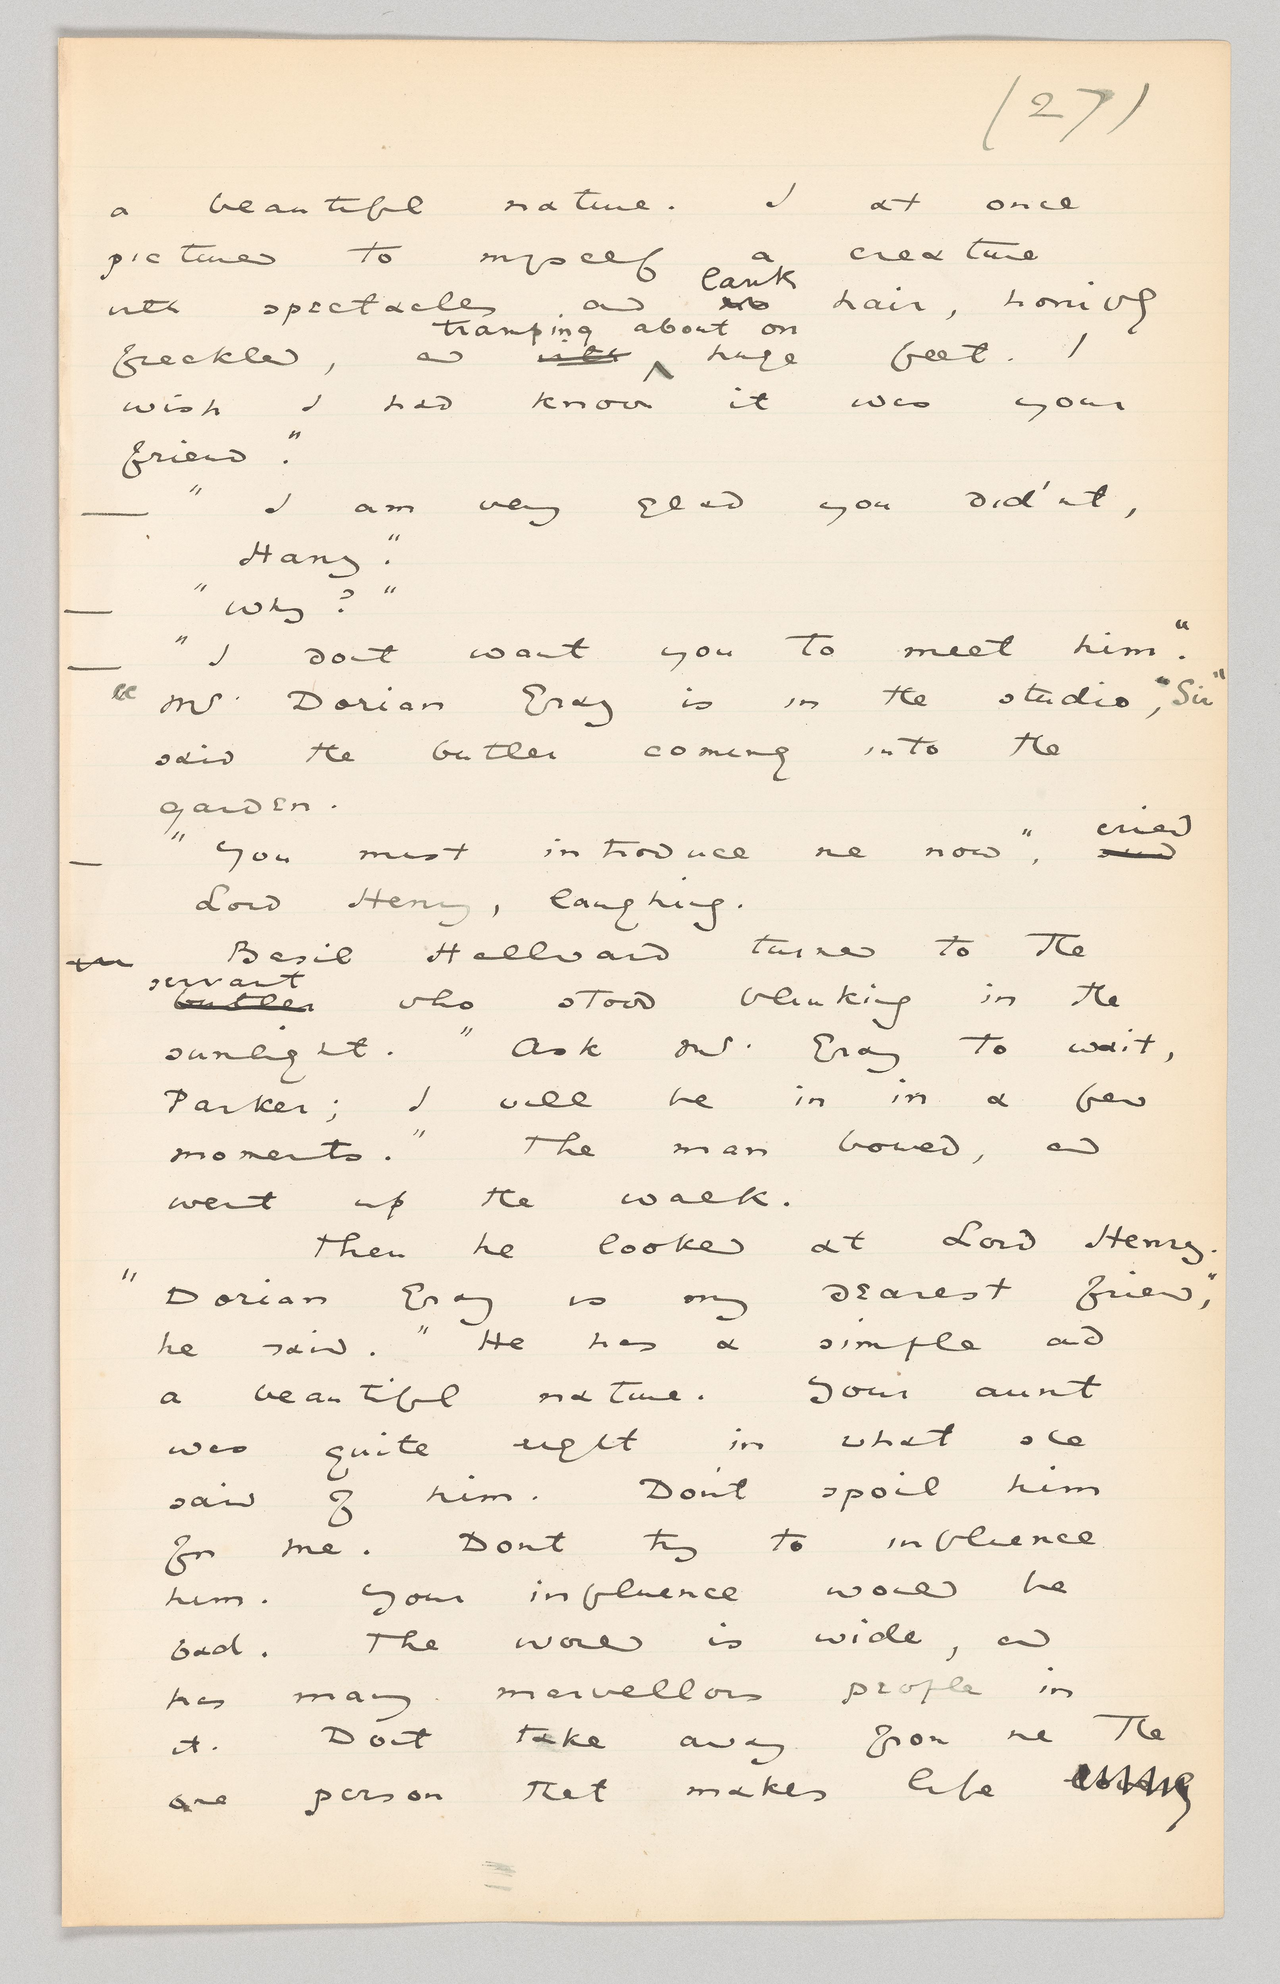 (27)
a beautiful nature. I at once
pictured to myself a creature
lank
with spectacles and hair, horribly
tramping about on
freckled, and with huge feet. I
wish I had known it was your
friend."
" I am very glad you did'nt,
Harry."
" Why ? "
" I dont want you to meet him."
" Mr. Dorian Gray is in the studio, Sir"
said the butler coming into the
garden.
cried
" You must introduce me now", said
Lord Henry, laughing.
Basil Hallward turned to the
servant
butler who stood blinking in the
sunlight. " Ask Mr. Gray to wait,
Parker; I will be in in a few
moments." The man bowed, and
went up the walk.
Then he looked at Lord Henry.
" Dorian Gray is my dearest friend,"
he said. " He has a simple and
a beautiful nature. Your aunt
was quite right in what she
said of him. Don't spoil him
for me. Dont try to influence
him. Your influence would be
bad. The world is wide, and
has many marvellous people in
it. Dont take away from me the
one person that makes life